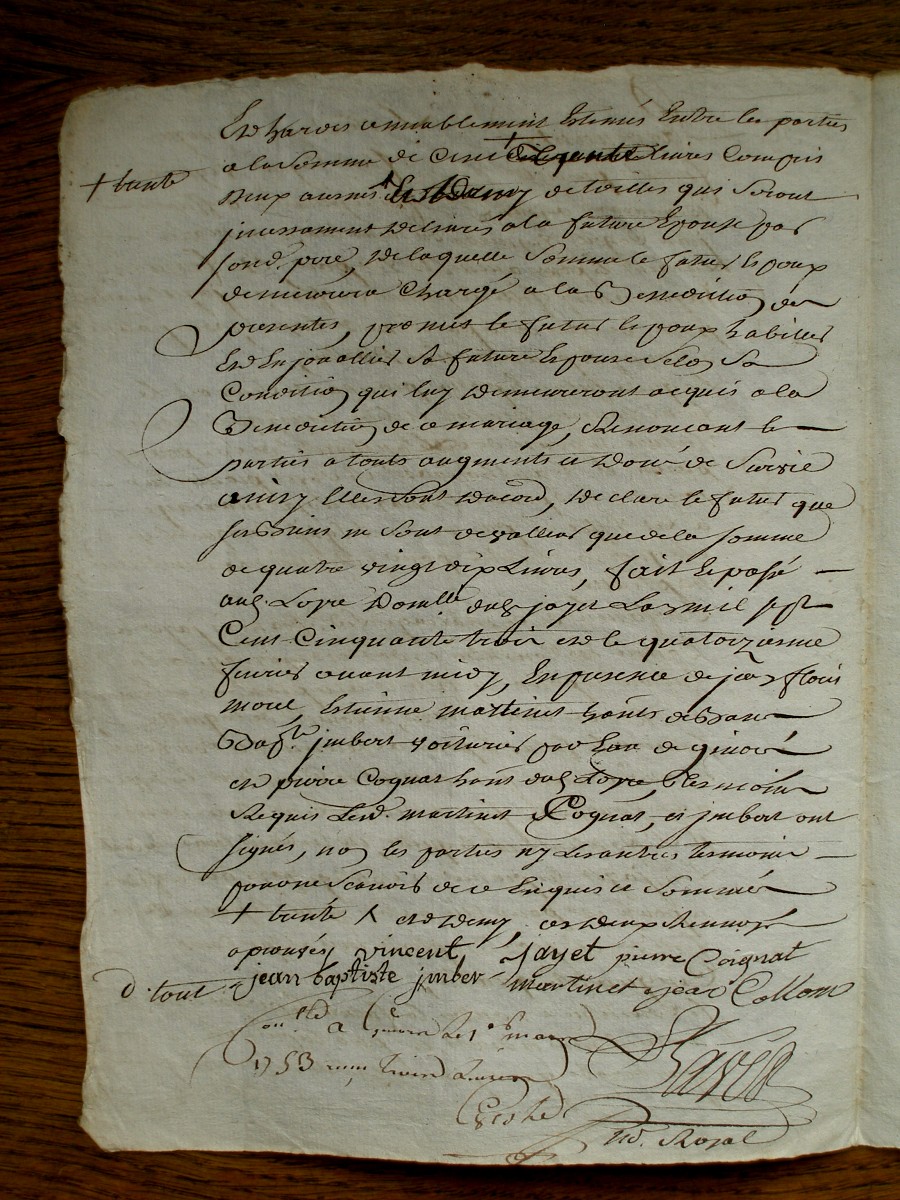 et hardes amiablement Estimés Entre les parties
a la Somme de Cent livres Compris
+ trante
Deux aunes de toilles qui Seront
jncessament Delivrés a la future Epouse par
sond. pere, De laquelle Somme le futur Epoux
demeurera Chargé a la Benediction des
presentes, promet le futur Epoux habiller
Et Enjoallier Sa future Epouse Selon Sa
Condition qui luy Demeureront acquis a la
Benediction de ce mariage, Renoncant les
parties a touts augments et de Survie
ainsy Elles Sont Dacord, Declare le futur que
ses Biens ne Sont de valleur que de la somme
de quatre vingt dix Livres, fait Et passé
aud. Loyre Domille dud. jayet Lan mil sept
Cent Cinquante trois et le quatorzieme
fevrier avant midy, En presence de jean
morel, Estienne martinet habts de
Bapte. jmbert voiturier par Eau de givors
et pierre Cognat habt dud. Loyre, tesmoins
Requis Led. martinet Cognat, et jmbert ont
signés, non les parties ny Les autres tesmoins
pour ne Scavoir de ce Enquis et Sommés
+ trante ^ et Demy, et Deux Renvoys
aprouvés vincent, Jayet pierre Coignat
d. tout jean baptiste jmber martinet jean Collom
Conlé a Givors le 1er mars
1753 Livres
Rd. Royal